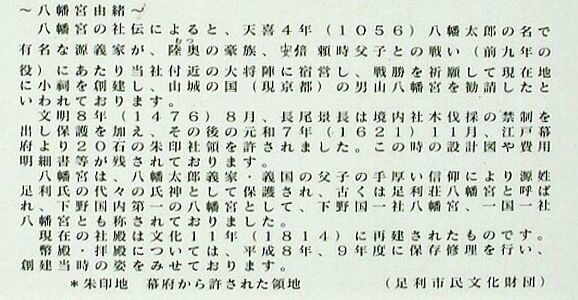 ～八幡宮由緒～
八幡宮の社伝によると、天喜4年(1056)八幡太郎の名で
有名な源義家が、陸奥の豪族、安倍頼時父子との戦い(前九年の
むつ
役)にあたり当社付近の大将陣に宿営し、戦勝を祈願して現在地
に小祠を創建し、山城の国(現京都)の男山八幡宮を勧請したと
いわれております。
文明8年(1476)8月、長尾景長は境内社木伐採の禁制を
出し保護を加え、その後の元和7年(1621)11月、江戸幕
府より20石の朱印社領を許されました。この時の設計図や費用
明細書等が残されております。
八幡宮は、八幡太郎義家・義国の父子の手厚い信仰により源姓
足利氏の代々の氏神として保護され、古くは足利荘八幡宮と呼ば
れ、下野国内第一の八幡宮として、下野国一社八幡宮、一国一社
八幡宮とも称されておりました。
現在の社殿は文化11年(1814)に再建されたものです。
幣殿・拝殿については、平成8年、9年度に保存修理を行い、
創建当時の姿をみせております。
*朱印地 幕府から許された領地 (足利市民文化財団)